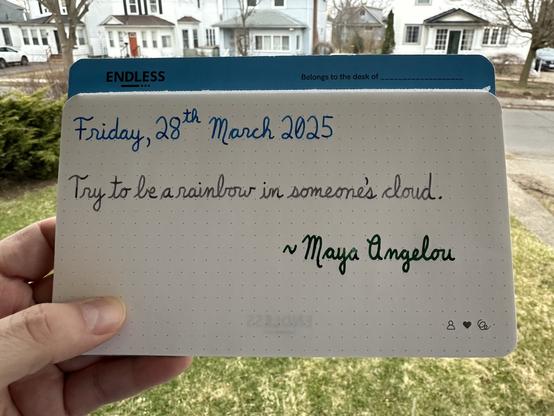 ENDLESS
Belongs to the desk of
Friday, 28th March 2025
Try to be a rainbow in someone's cloud.
~ Maya Angelou
ENDLESS